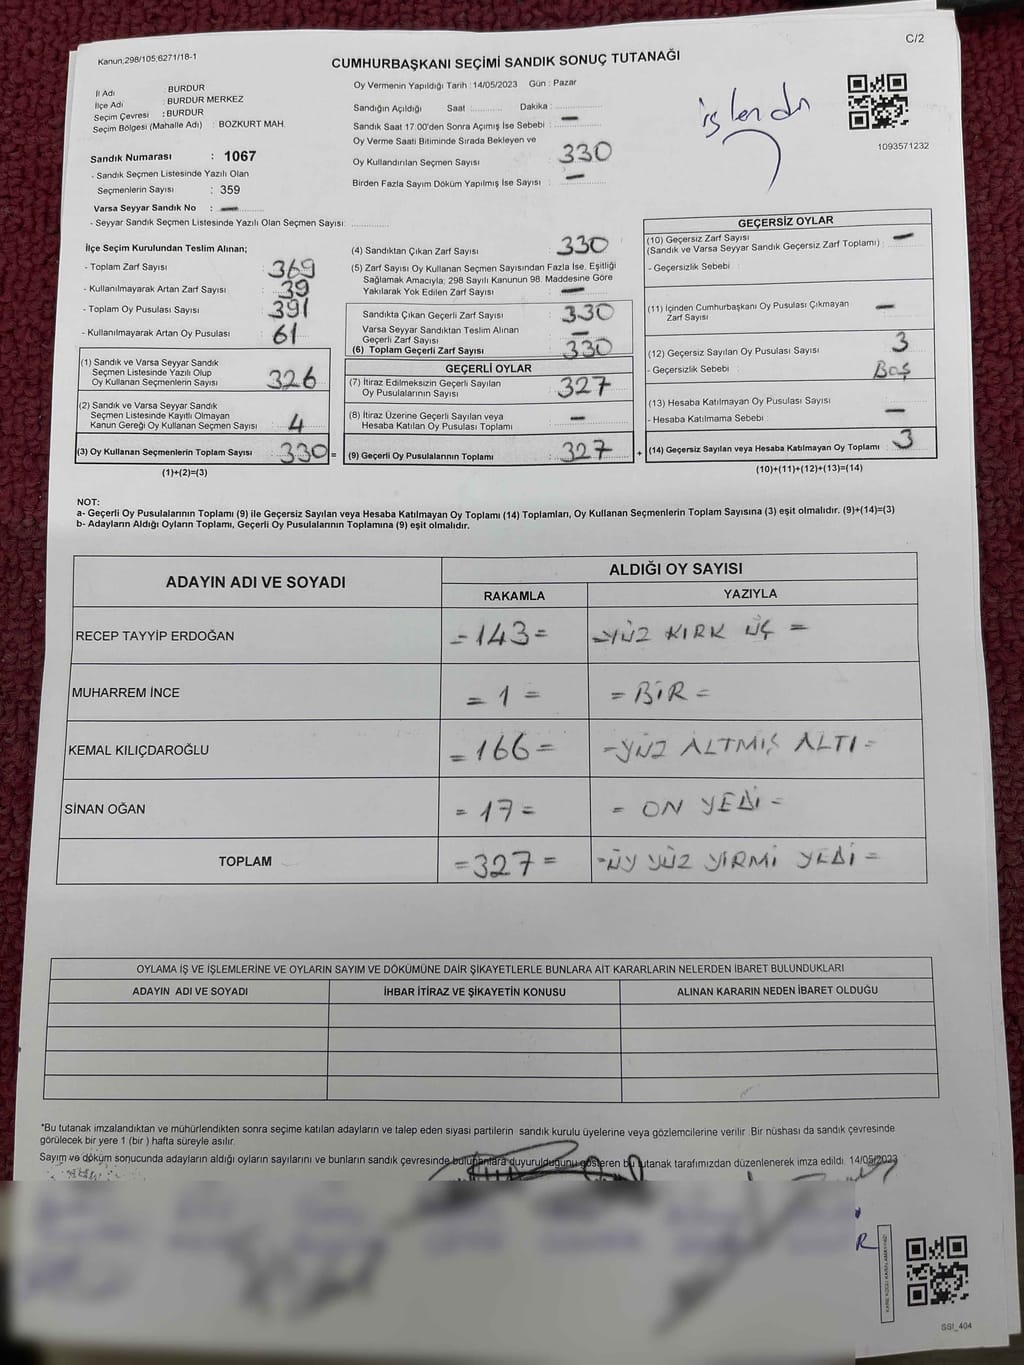 C/2
Kanun;298/105;6271/18-1
CUMHURBAŞKANI SEÇİMİ SANDIK SONUÇ TUTANAĞI
İl Adı : BURDUR
İlçe Adı : BURDUR MERKEZ
Seçim Çevresi : BURDUR
Seçim Bölgesi (Mahalle Adı) : BOZKURT MAH.
Sandık Numarası : 1067
- Sandık Seçmen Listesinde Yazılı Olan
Seçmenlerin Sayısı : 359
Varsa Seyyar Sandık No : —
- Seyyar Sandık Seçmen Listesinde Yazılı Olan Seçmen Sayısı:
Oy Vermenin Yapıldığı Tarih : 14/05/2023 Gün : Pazar
Sandığın Açıldığı Saat ........... Dakika :
Sandık Saat 17:00'den Sonra Açımış İse Sebebi : —
Oy Verme Saati Bitiminde Sırada Bekleyen ve
Oy Kullandırılan Seçmen Sayısı 330
Birden Fazla Sayım Döküm Yapılmış İse Sayısı : —
işlendi
1093571232
İlçe Seçim Kurulundan Teslim Alınan;
- Toplam Zarf Sayısı : 369
- Kullanılmayarak Artan Zarf Sayısı : 39
- Toplam Oy Pusulası Sayısı : 391
- Kullanılmayarak Artan Oy Pusulası : 61
(1) Sandık ve Varsa Seyyar Sandık
Seçmen Listesinde Yazılı Olup
Oy Kullanan Seçmenlerin Sayısı : 326
(2) Sandık ve Varsa Seyyar Sandık
Seçmen Listesinde Kayıtlı Olmayan
Kanun Gereği Oy Kullanan Seçmen Sayısı : 4
(3) Oy Kullanan Seçmenlerin Toplam Sayısı : 330 =
(1)+(2)=(3)
(4) Sandıktan Çıkan Zarf Sayısı : 330
(5) Zarf Sayısı Oy Kullanan Seçmen Sayısından Fazla İse, Eşitliği
Sağlamak Amacıyla; 298 Sayılı Kanunun 98. Maddesine Göre
Yakılarak Yok Edilen Zarf Sayısı : —
Sandıkta Çıkan Geçerli Zarf Sayısı : 330
Varsa Seyyar Sandıktan Teslim Alınan
Geçerli Zarf Sayısı : —
(6) Toplam Geçerli Zarf Sayısı : 330
GEÇERLİ OYLAR
(7) İtiraz Edilmeksizin Geçerli Sayılan
Oy Pusulalarının Sayısı : 327
(8) İtiraz Üzerine Geçerli Sayılan veya
Hesaba Katılan Oy Pusulası Toplamı : —
(9) Geçerli Oy Pusulalarının Toplamı : 327 +
GEÇERSİZ OYLAR
(10) Geçersiz Zarf Sayısı
(Sandık ve Varsa Seyyar Sandık Geçersiz Zarf Toplamı) : —
- Geçersizlik Sebebi :
(11) İçinden Cumhurbaşkanı Oy Pusulası Çıkmayan
Zarf Sayısı : —
(12) Geçersiz Sayılan Oy Pusulası Sayısı : 3
- Geçersizlik Sebebi : Boş
(13) Hesaba Katılmayan Oy Pusulası Sayısı
- Hesaba Katılmama Sebebi : —
(14) Geçersiz Sayılan veya Hesaba Katılmayan Oy Toplamı : 3
(10)+(11)+(12)+(13)=(14)
NOT:
a- Geçerli Oy Pusulalarının Toplamı (9) ile Geçersiz Sayılan veya Hesaba Katılmayan Oy Toplamı (14) Toplamları, Oy Kullanan Seçmenlerin Toplam Sayısına (3) eşit olmalıdır. (9)+(14)=(3)
b- Adayların Aldığı Oyların Toplamı, Geçerli Oy Pusulalarının Toplamına (9) eşit olmalıdır.
ADAYIN ADI VE SOYADI ALDIĞI OY SAYISI
RAKAMLA YAZIYLA
RECEP TAYYİP ERDOĞAN =143= =YÜZ KIRK ÜÇ =
MUHARREM İNCE =1= =BİR=
KEMAL KILIÇDAROĞLU =166= =YÜZ ALTMIŞ ALTI=
SİNAN OĞAN =17= =ON YEDİ=
TOPLAM =327= =ÜY YÜZ YİRMİ YEDİ=
OYLAMA İŞ VE İŞLEMLERİNE VE OYLARIN SAYIM VE DÖKÜMÜNE DAİR ŞİKAYETLERLE BUNLARA AİT KARARLARIN NELERDEN İBARET BULUNDUKLARI
ADAYIN ADI VE SOYADI İHBAR İTİRAZ VE ŞİKAYETİN KONUSU ALINAN KARARIN NEDEN İBARET OLDUĞU
*Bu tutanak imzalandıktan ve mühürlendikten sonra seçime katılan adayların ve talep eden siyasi partilerin sandık kurulu üyelerine veya gözlemcilerine verilir. Bir nüshası da sandık çevresinde
görülecek bir yere 1 (bir ) hafta süreyle asılır.
Sayım ve döküm sonucunda adayların aldığı oyların sayılarını ve bunların sandık çevresinde bulunanlara duyurulduğunu gösteren bu tutanak tarafımızdan düzenlenerek imza edildi. 14/05/2023
R
SSI_404